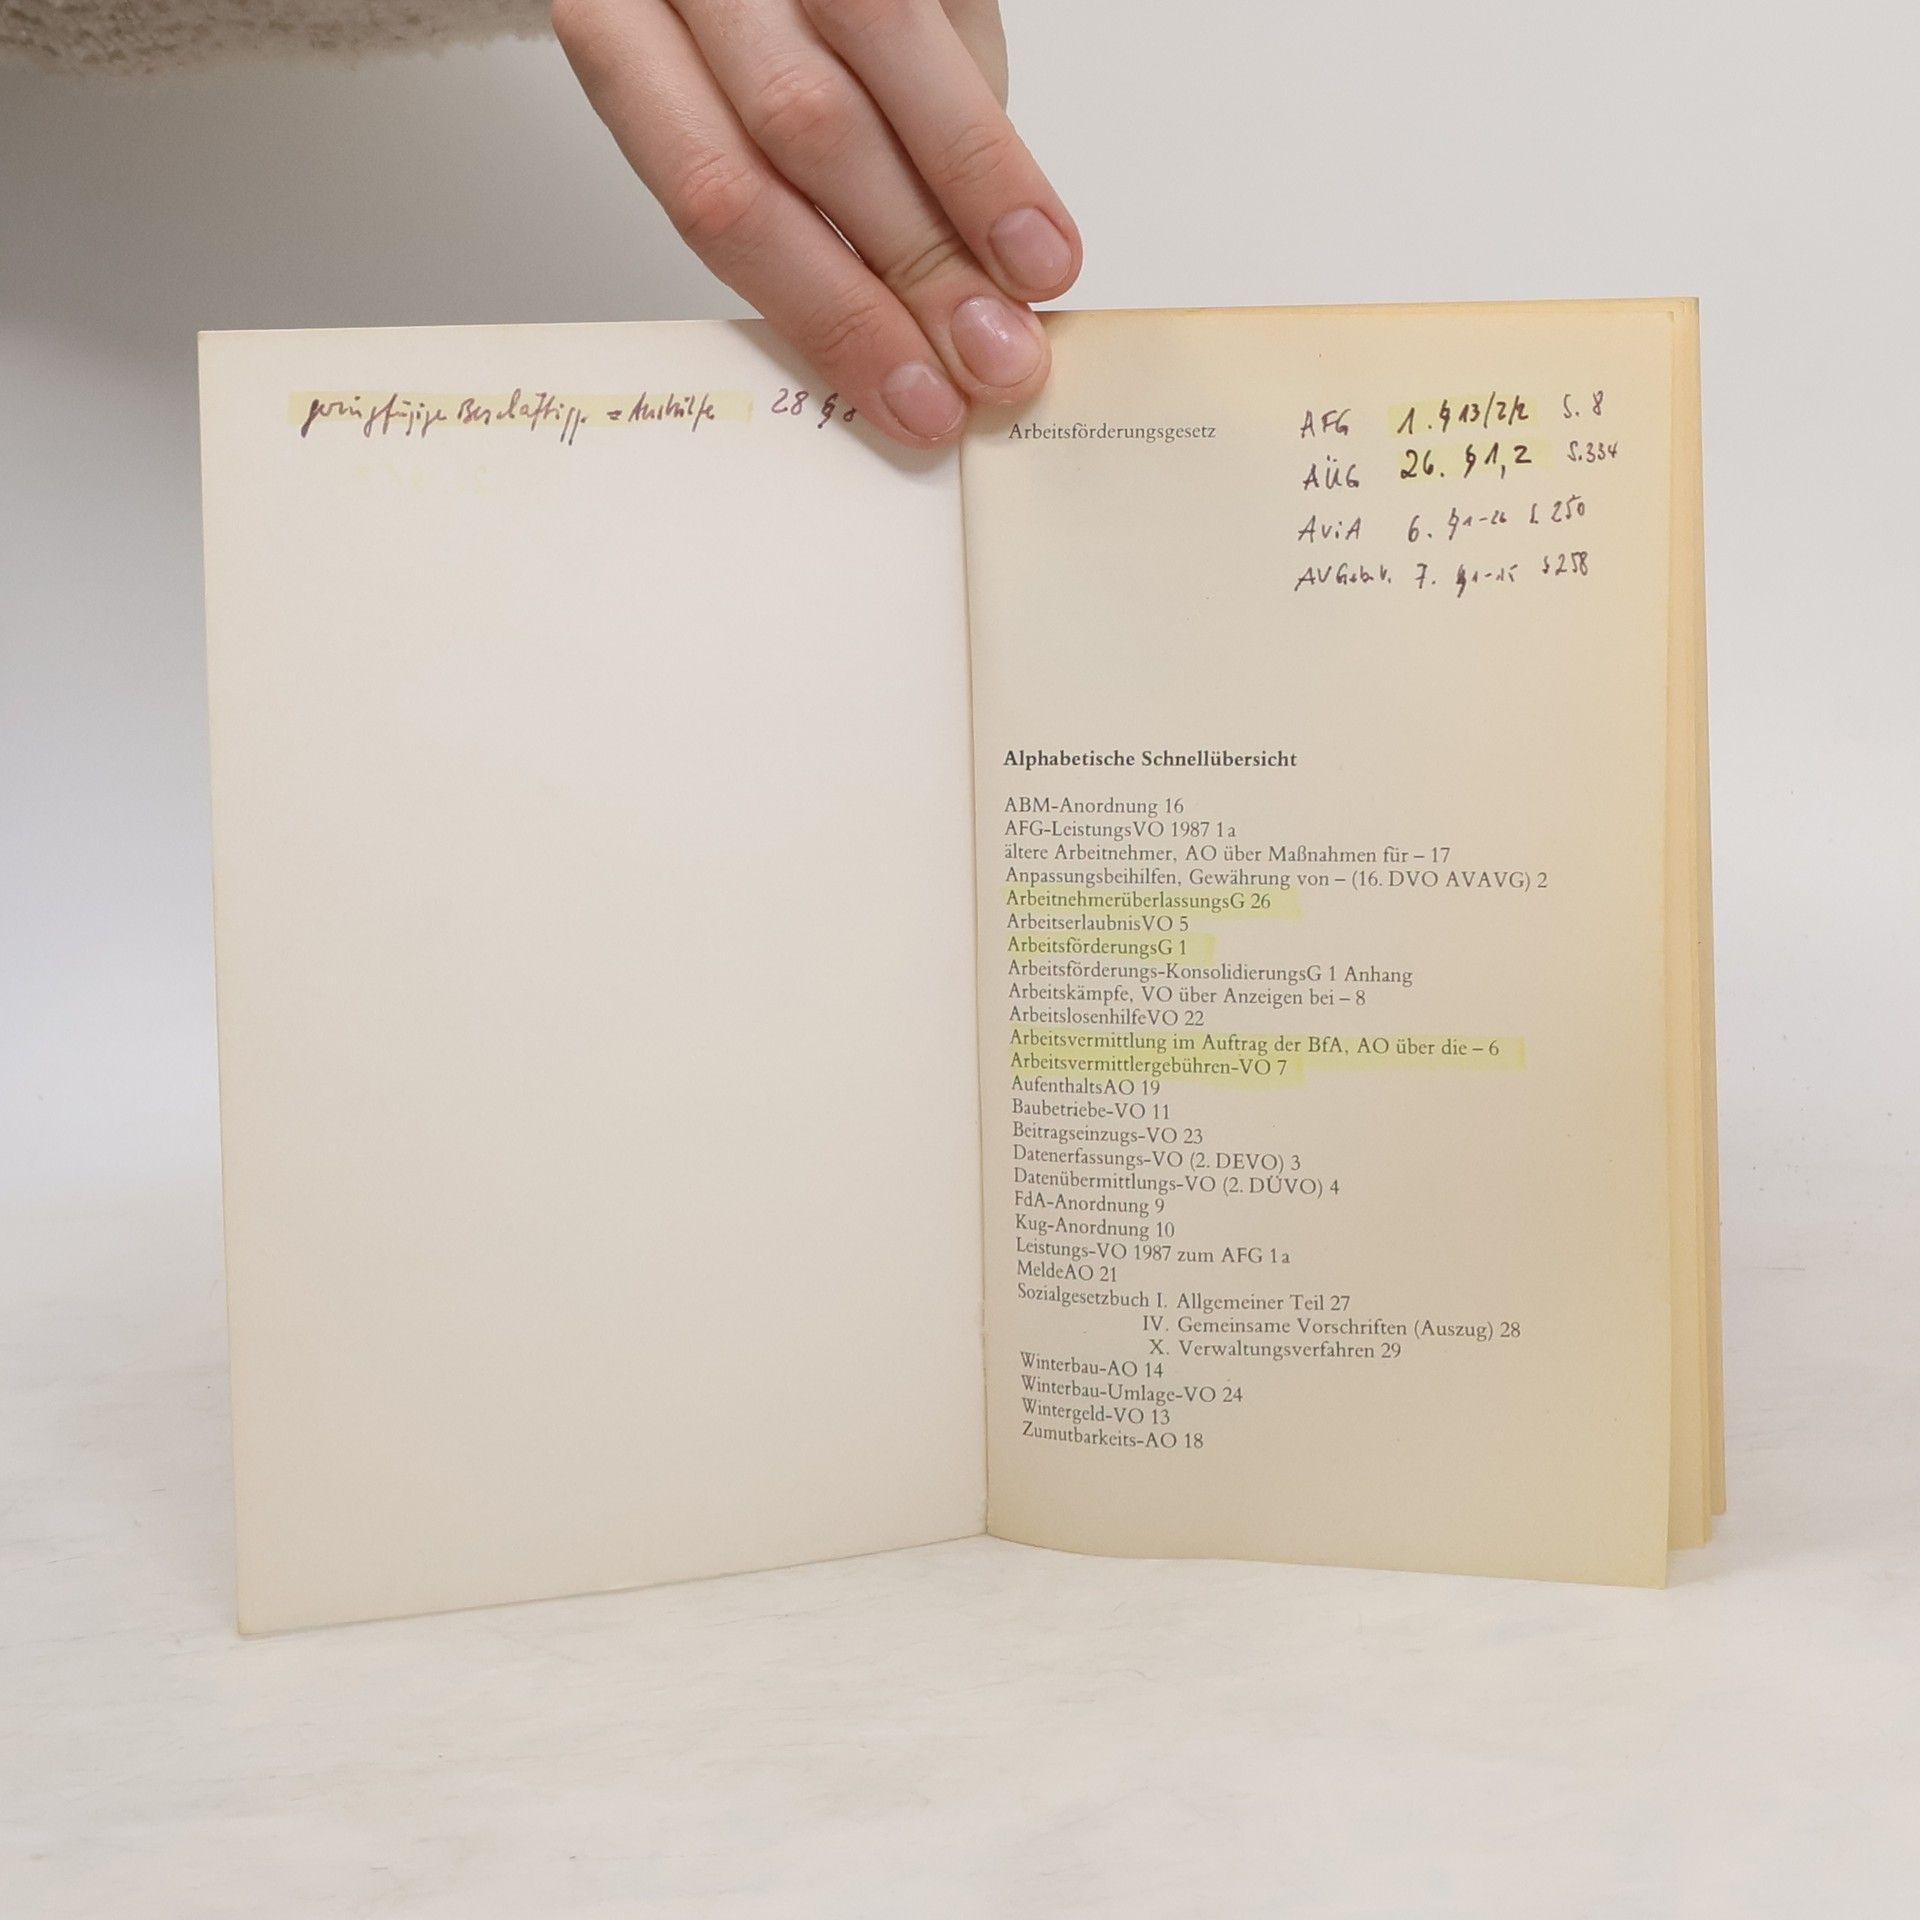 geringfügige Beschäftigg. = Aushilfe 28 § 8
Arbeitsförderungsgesetz
AFG 1. § 13/2/2 S. 8
AÜG 26. § 1, 2 S. 334
AViA 6. § 1-26 S. 250
AVGeb.V. 7. § 1-15 S 258
Alphabetische Schnellübersicht
ABM-Anordnung 16
AFG-LeistungsVO 1987 1a
ältere Arbeitnehmer, AO über Maßnahmen für – 17
Anpassungsbeihilfen, Gewährung von – (16. DVO AVAVG) 2
ArbeitnehmerüberlassungsG 26
ArbeitserlaubnisVO 5
ArbeitsförderungsG 1
Arbeitsförderungs-KonsolidierungsG 1 Anhang
Arbeitskämpfe, VO über Anzeigen bei – 8
ArbeitslosenhilfeVO 22
Arbeitsvermittlung im Auftrag der BfA, AO über die – 6
Arbeitsvermittlergebühren-VO 7
AufenthaltsAO 19
Baubetriebe-VO 11
Beitragseinzugs-VO 23
Datenerfassungs-VO (2. DEVO) 3
Datenübermittlungs-VO (2. DÜVO) 4
FdA-Anordnung 9
Kug-Anordnung 10
Leistungs-VO 1987 zum AFG 1a
MeldeAO 21
Sozialgesetzbuch I. Allgemeiner Teil 27
IV. Gemeinsame Vorschriften (Auszug) 28
X. Verwaltungsverfahren 29
Winterbau-AO 14
Winterbau-Umlage-VO 24
Wintergeld-VO 13
Zumutbarkeits-AO 18